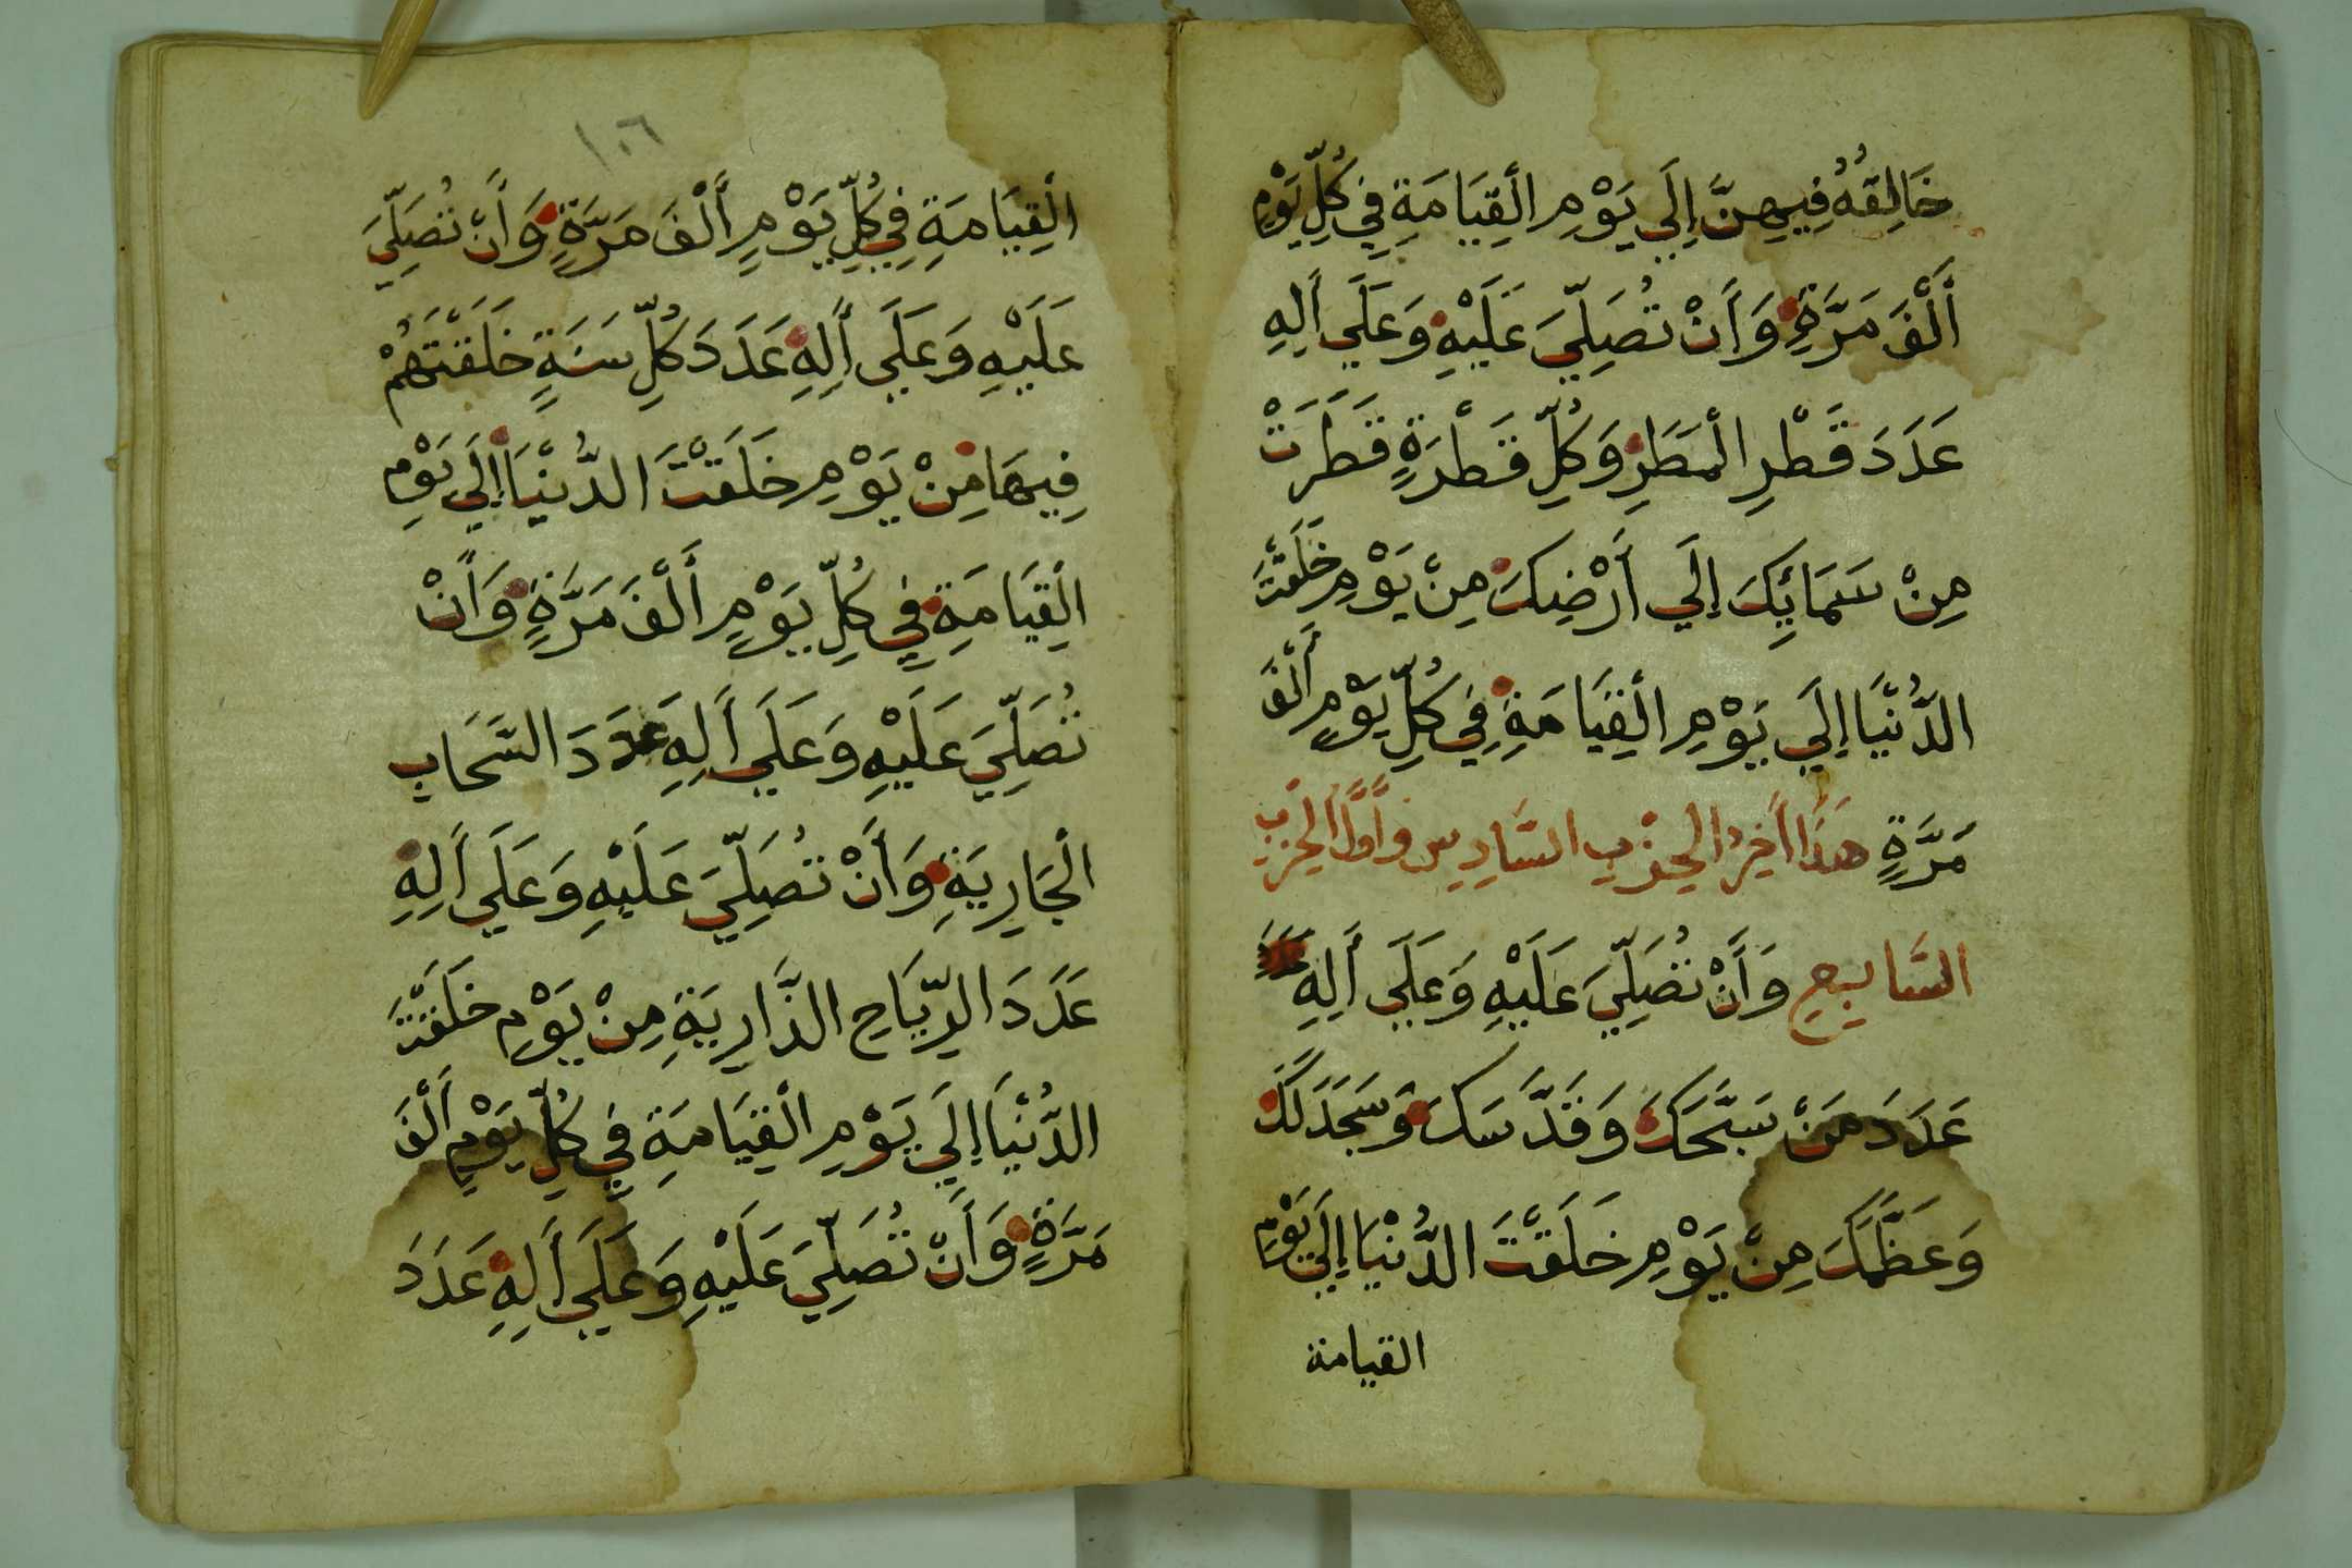 خَالِقُهُ فِيهِنَّ إِلَي يَوْمِ الْقِيَامَةِ فِي كُلِّ يَوْمٍ
أَلْفَ مَرَّةٍ وَأَنْ تُصَلِّيَ عَلَيْهِ وَعَلَي أَلِهِ
عَدَدَ قَطْرِ الْمَطَرِ وَكُلِّ قَطْرَةٍ قَطَرَتْ
مِنْ سَمَائِكَ إِلَي أَرْضِكَ مِنْ يَوْمِ خَلَقْتَ
الدُّنْيَا إِلَي يَوْمِ الْقِيَامَةِ فِي كُلِّ يَوْمٍ أَلْفَ
مَرَّةٍ هَذَا أَخِرُ الحِزْبِ السَّادِسِ وَأَوَّلُ الحِزْبِ
السَّابِعِ وَأَنْ تُصَلِّيَ عَلَيْهِ وَعَلَي أَلِهِ
عَدَدَ مَنْ سَبَّحَكَ وَقَدَّسَكَ وَسَجَدَ لَكَ
وَعَظَّمَكَ مِنْ يَوْمِ خَلَقْتَ الدُّنْيَا إِلَي يَوْمِ
القيامة
١٠٦
الْقِيَامَةِ فِي كُلِّ يَوْمٍ أَلْفَ مَرَّةٍ وَأَنْ تُصَلِّيَ
عَلَيْهِ وَعَلَي أَلِهِ عَدَدَ كُلِّ سَنَةٍ خَلَقْتَهُمْ
فِيهَا مِنْ يَوْمِ خَلَقْتَ الدُّنْيَا إِلَي يَوْمِ
الْقِيَامَةِ فِي كُلِّ يَوْمٍ أَلْفَ مَرَّةٍ وَأَنْ
تُصَلِّيَ عَلَيْهِ وَعَلَي أَلِهِ عَدَدَ السَّحَابِ
الْجَارِيَةِ وَأَنْ تُصَلِّيَ عَلَيْهِ وَعَلَي أَلِهِ
عَدَدَ الرِّيَاحِ الذَّارِيَةِ مِنْ يَوْمِ خَلَقْتَ
الدُّنْيَا إِلَي يَوْمِ الْقِيَامَةِ فِي كُلِّ يَوْمٍ أَلْفَ
مَرَّةٍ وَأَنْ تُصَلِّيَ عَلَيْهِ وَعَلَي أَلِهِ عَدَدَ